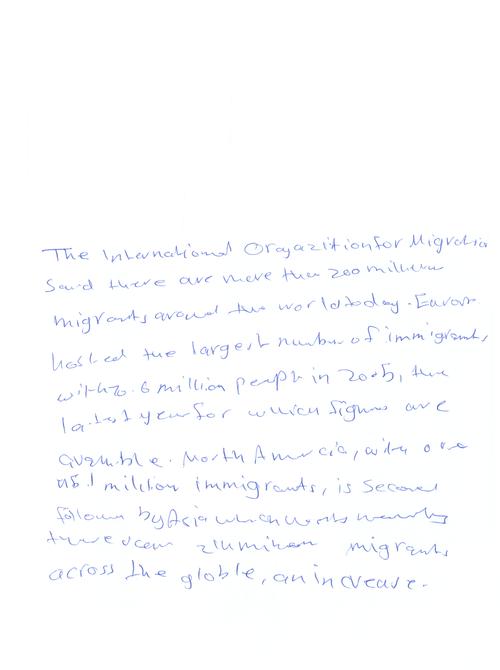 The International Orgazitionfor Migration
Said there are more than 200 million
migrants around the world today. Europe
hosted the largest number of immigrants,
with 70.6 million people in 2005, the
latest year for which figures are
avaenble. North America, with over
45.1 million immigrants, is second
follown by Asia which hosts nearly
million migrants
across the globle, an increase.